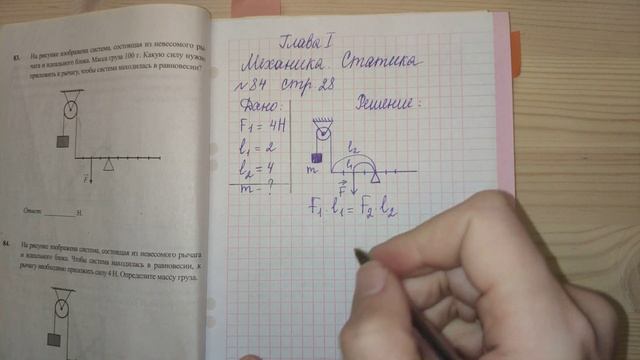 83. На рисунке изображена система, состоящая из невесомого ры-
чага и идеального блока. Масса груза 100 г. Какую силу нужно
приложить к рычагу, чтобы система находилась в равновесии?
F
Ответ Н.
84. На рисунке изображена система, состоящая из невесомого рычага
и идеального блока. Чтобы система находилась в равновесии, к
рычагу необходимо приложить силу 4 Н. Определите массу груза.
Глава I
Механика. Статика
№84 стр. 28
Дано:
F₁ = 4Н
l₁ = 2
l₂ = 4
m - ?
Решение:
l₂
l₁
m
F
F₁ · l₁ = F₂ · l₂